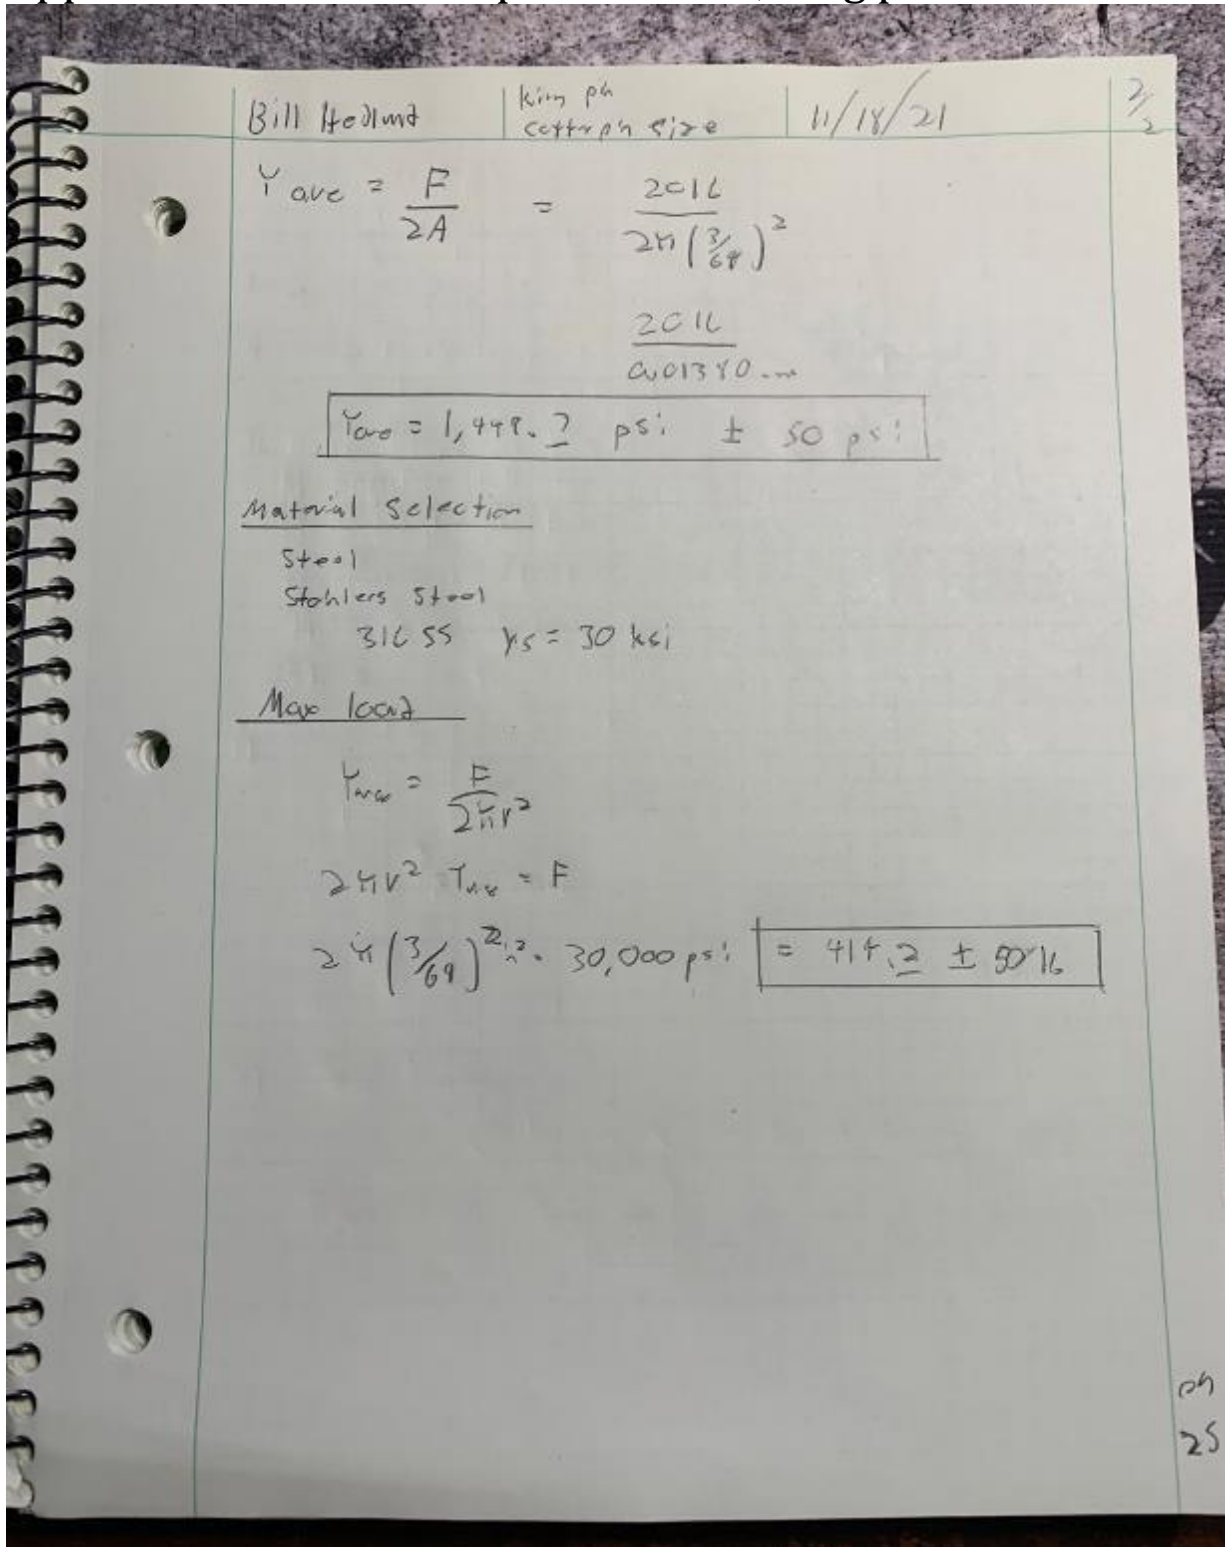 Bill Hedlund
king pin
cotter pin size
11/18/21
2/2
τ ave = F/2A = 20 lb / 2π(3/64)²
20 lb / 0.01380 in²
τave = 1,448.2 psi ± 50 psi
Material Selection
Steel
Stainless Steel
316 SS YS = 30 ksi
Max load
τmax = F/2πr²
2πr² τmax = F
2π(3/64)² in² · 30,000 psi = 414.2 ± 50 lb
25